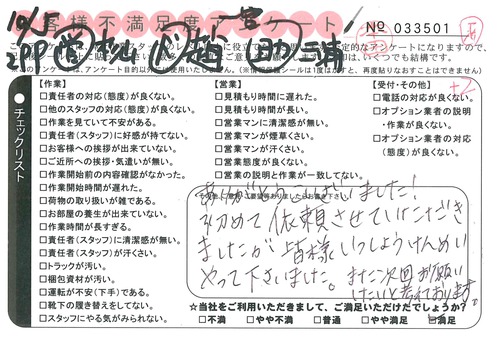 お客様不満足度アンケート
№ 033501
10/5
+2
チェックリスト
【作業】
□責任者の対応(態度)が良くない。
□他のスタッフの対応(態度)が良くない。
□作業を見ていて不安がある。
□責任者(スタッフ)に好感が持てない。
□お客様への挨拶が出来ていない。
□ご近所への挨拶・気遣いが無い。
□作業開始前の内容確認がなかった。
□作業開始時間が遅れた。
□荷物の取り扱いが雑である。
□お部屋の養生が出来ていない。
□作業時間が長すぎる。
□責任者(スタッフ)に清潔感が無い。
□責任者(スタッフ)が汗くさい。
□トラックが汚い。
□梱包資材が汚い。
□運転が不安(下手)である。
□靴下の履き替えをしてない。
□スタッフにやる気がみられない。
【営業】
□見積もり時間に遅れた。
□見積もり時間が長い。
□営業マンに清潔感が無い。
□営業マンが煙草くさい。
□営業マンが汗くさい。
□営業態度が良くない。
□営業の説明と作業が一致してない。
【受付・その他】
□電話の対応が良くない。
□オプション業者の説明
・作業が良くない。
□オプション業者の対応
(態度)が良くない。
ありがとうございました!
初めて依頼させていただき
ましたが皆様いっしょうけんめい
やって下さいました。また次回お願い
したいと考えております。
☆当社をご利用いただきまして、ご満足いただけたでしょうか?
□不満 □やや不満 □普通 □やや満足 □満足